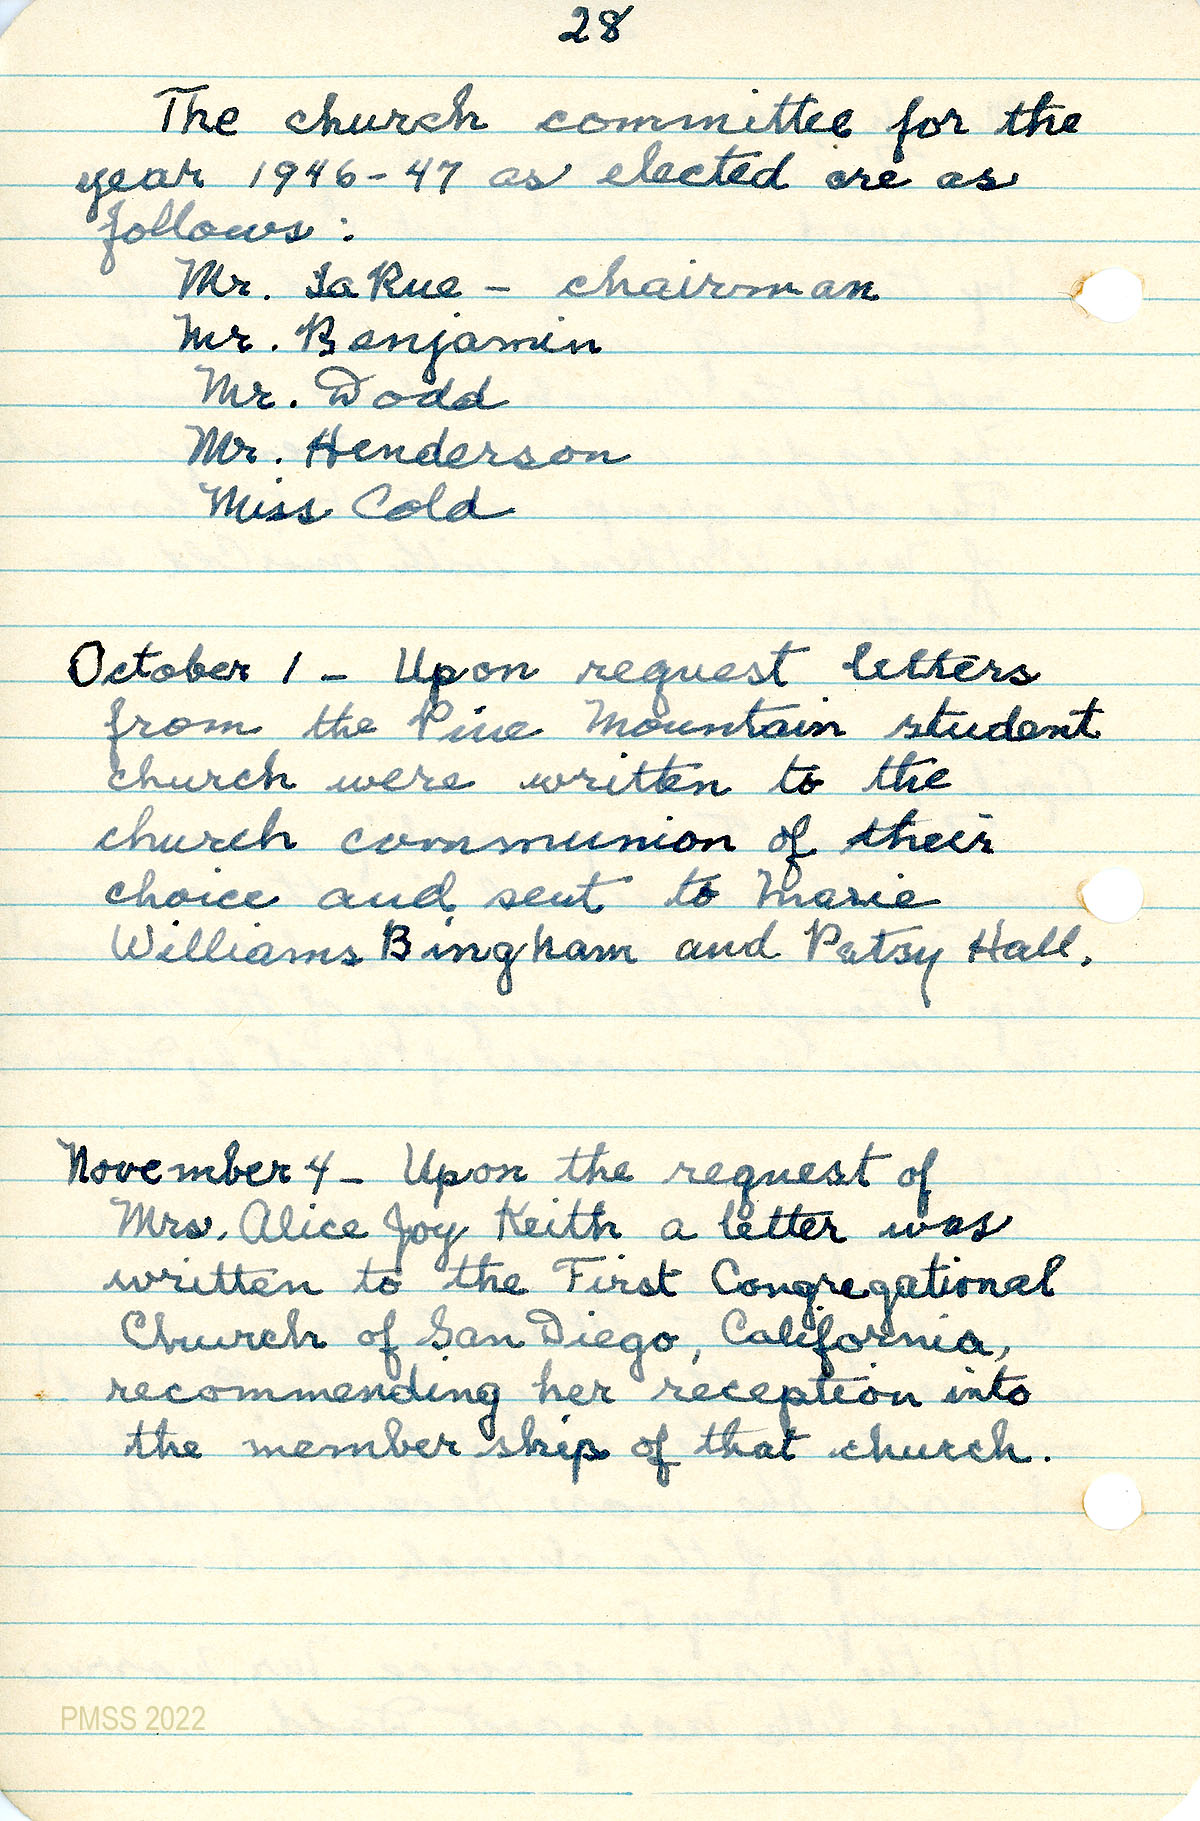 28
The church committee for the
year 1946-47 as elected are as
follows:
Mr. LaRue - chairman
Mr. Benjamin
Mr. Dodd
Mr. Henderson
Miss Cold
October 1 - Upon request letters
from the Pine Mountain student
church were written to the
church communion of their
choice and sent to Marie
Williams Bingham and Patsy Hall.
November 4 - Upon the request of
Mrs. Alice Joy Keith a letter was
written to the First Congregational
Church of San Diego, California,
recommending her reception into
the member ship of that church.
PMSS 2022